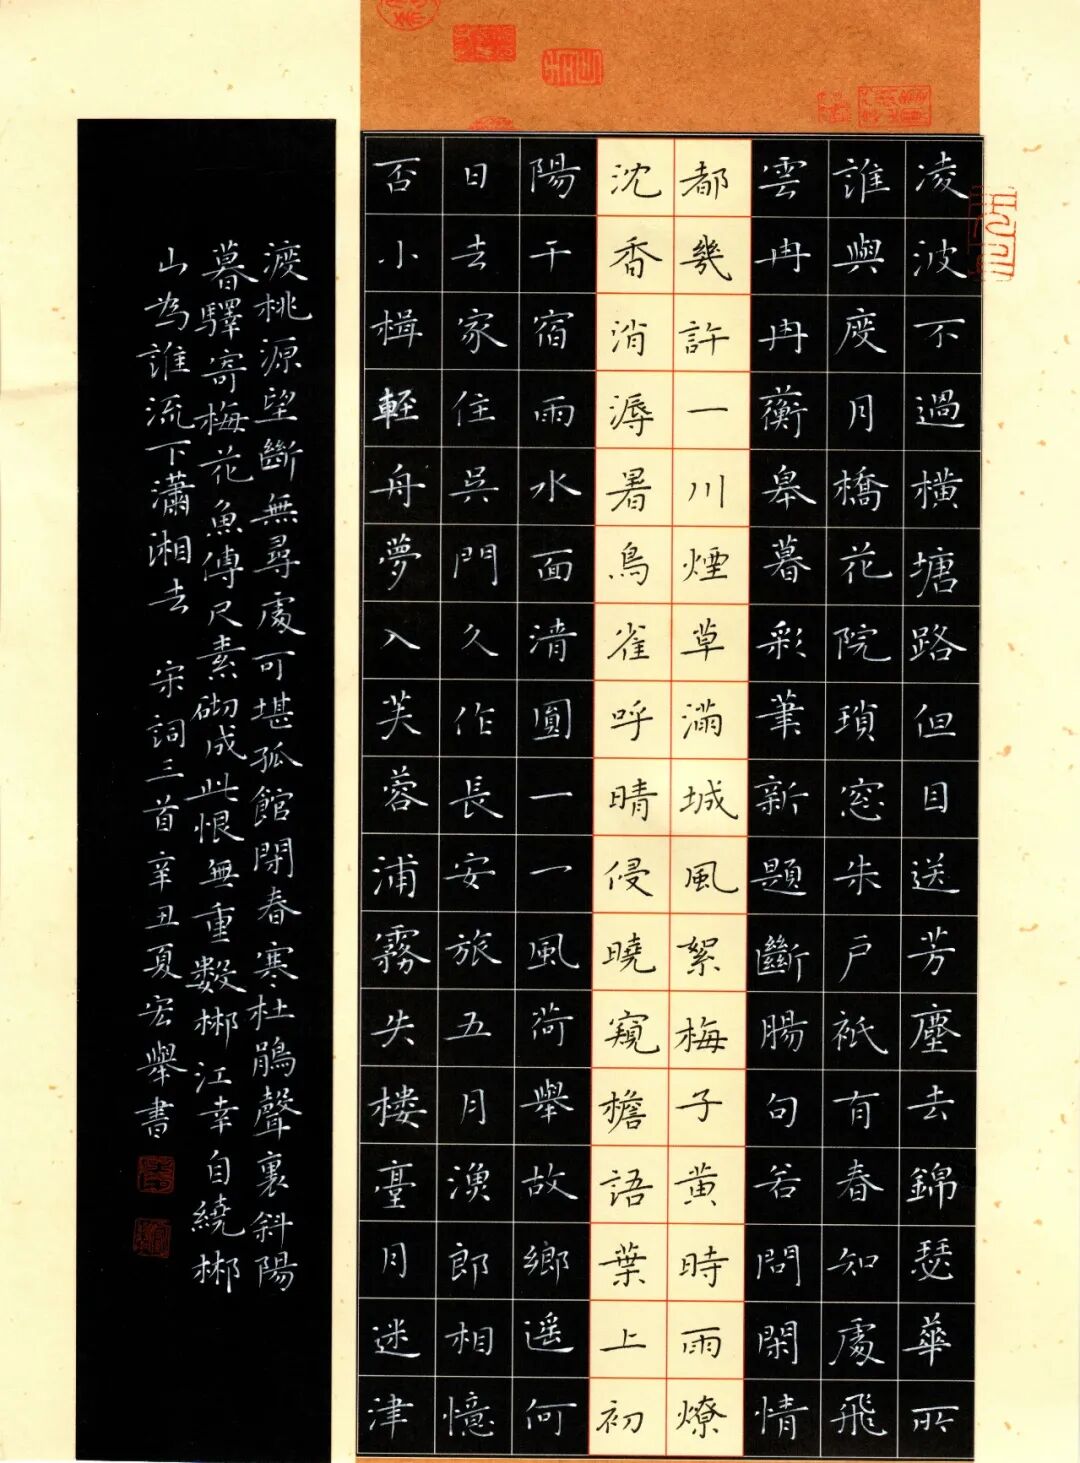 凌波不過橫塘路但目送芳塵去錦瑟華所
誰與度月橋花院瑣窓朱戶衹有春知處飛
雲冉冉蘅皋暮彩筆新題斷腸句若問閑情
都幾許一川煙草滿城風絮梅子黃時雨燎
沈香消溽暑鳥雀呼晴侵曉窺檐語葉上初
陽干宿雨水面清圓一一風荷舉故鄉遥何
日去家住吳門久作長安旅五月漁郎相憶
否小楫輕舟夢入芙蓉浦霧失楼臺月迷津
渡桃源望斷無尋處可堪孤館閉春寒杜鵑聲裏斜陽
暮驛寄梅花魚傳尺素砌成此恨無重數郴江幸自繞郴
山為誰流下瀟湘去 宋詞三首辛丑夏宏舉書